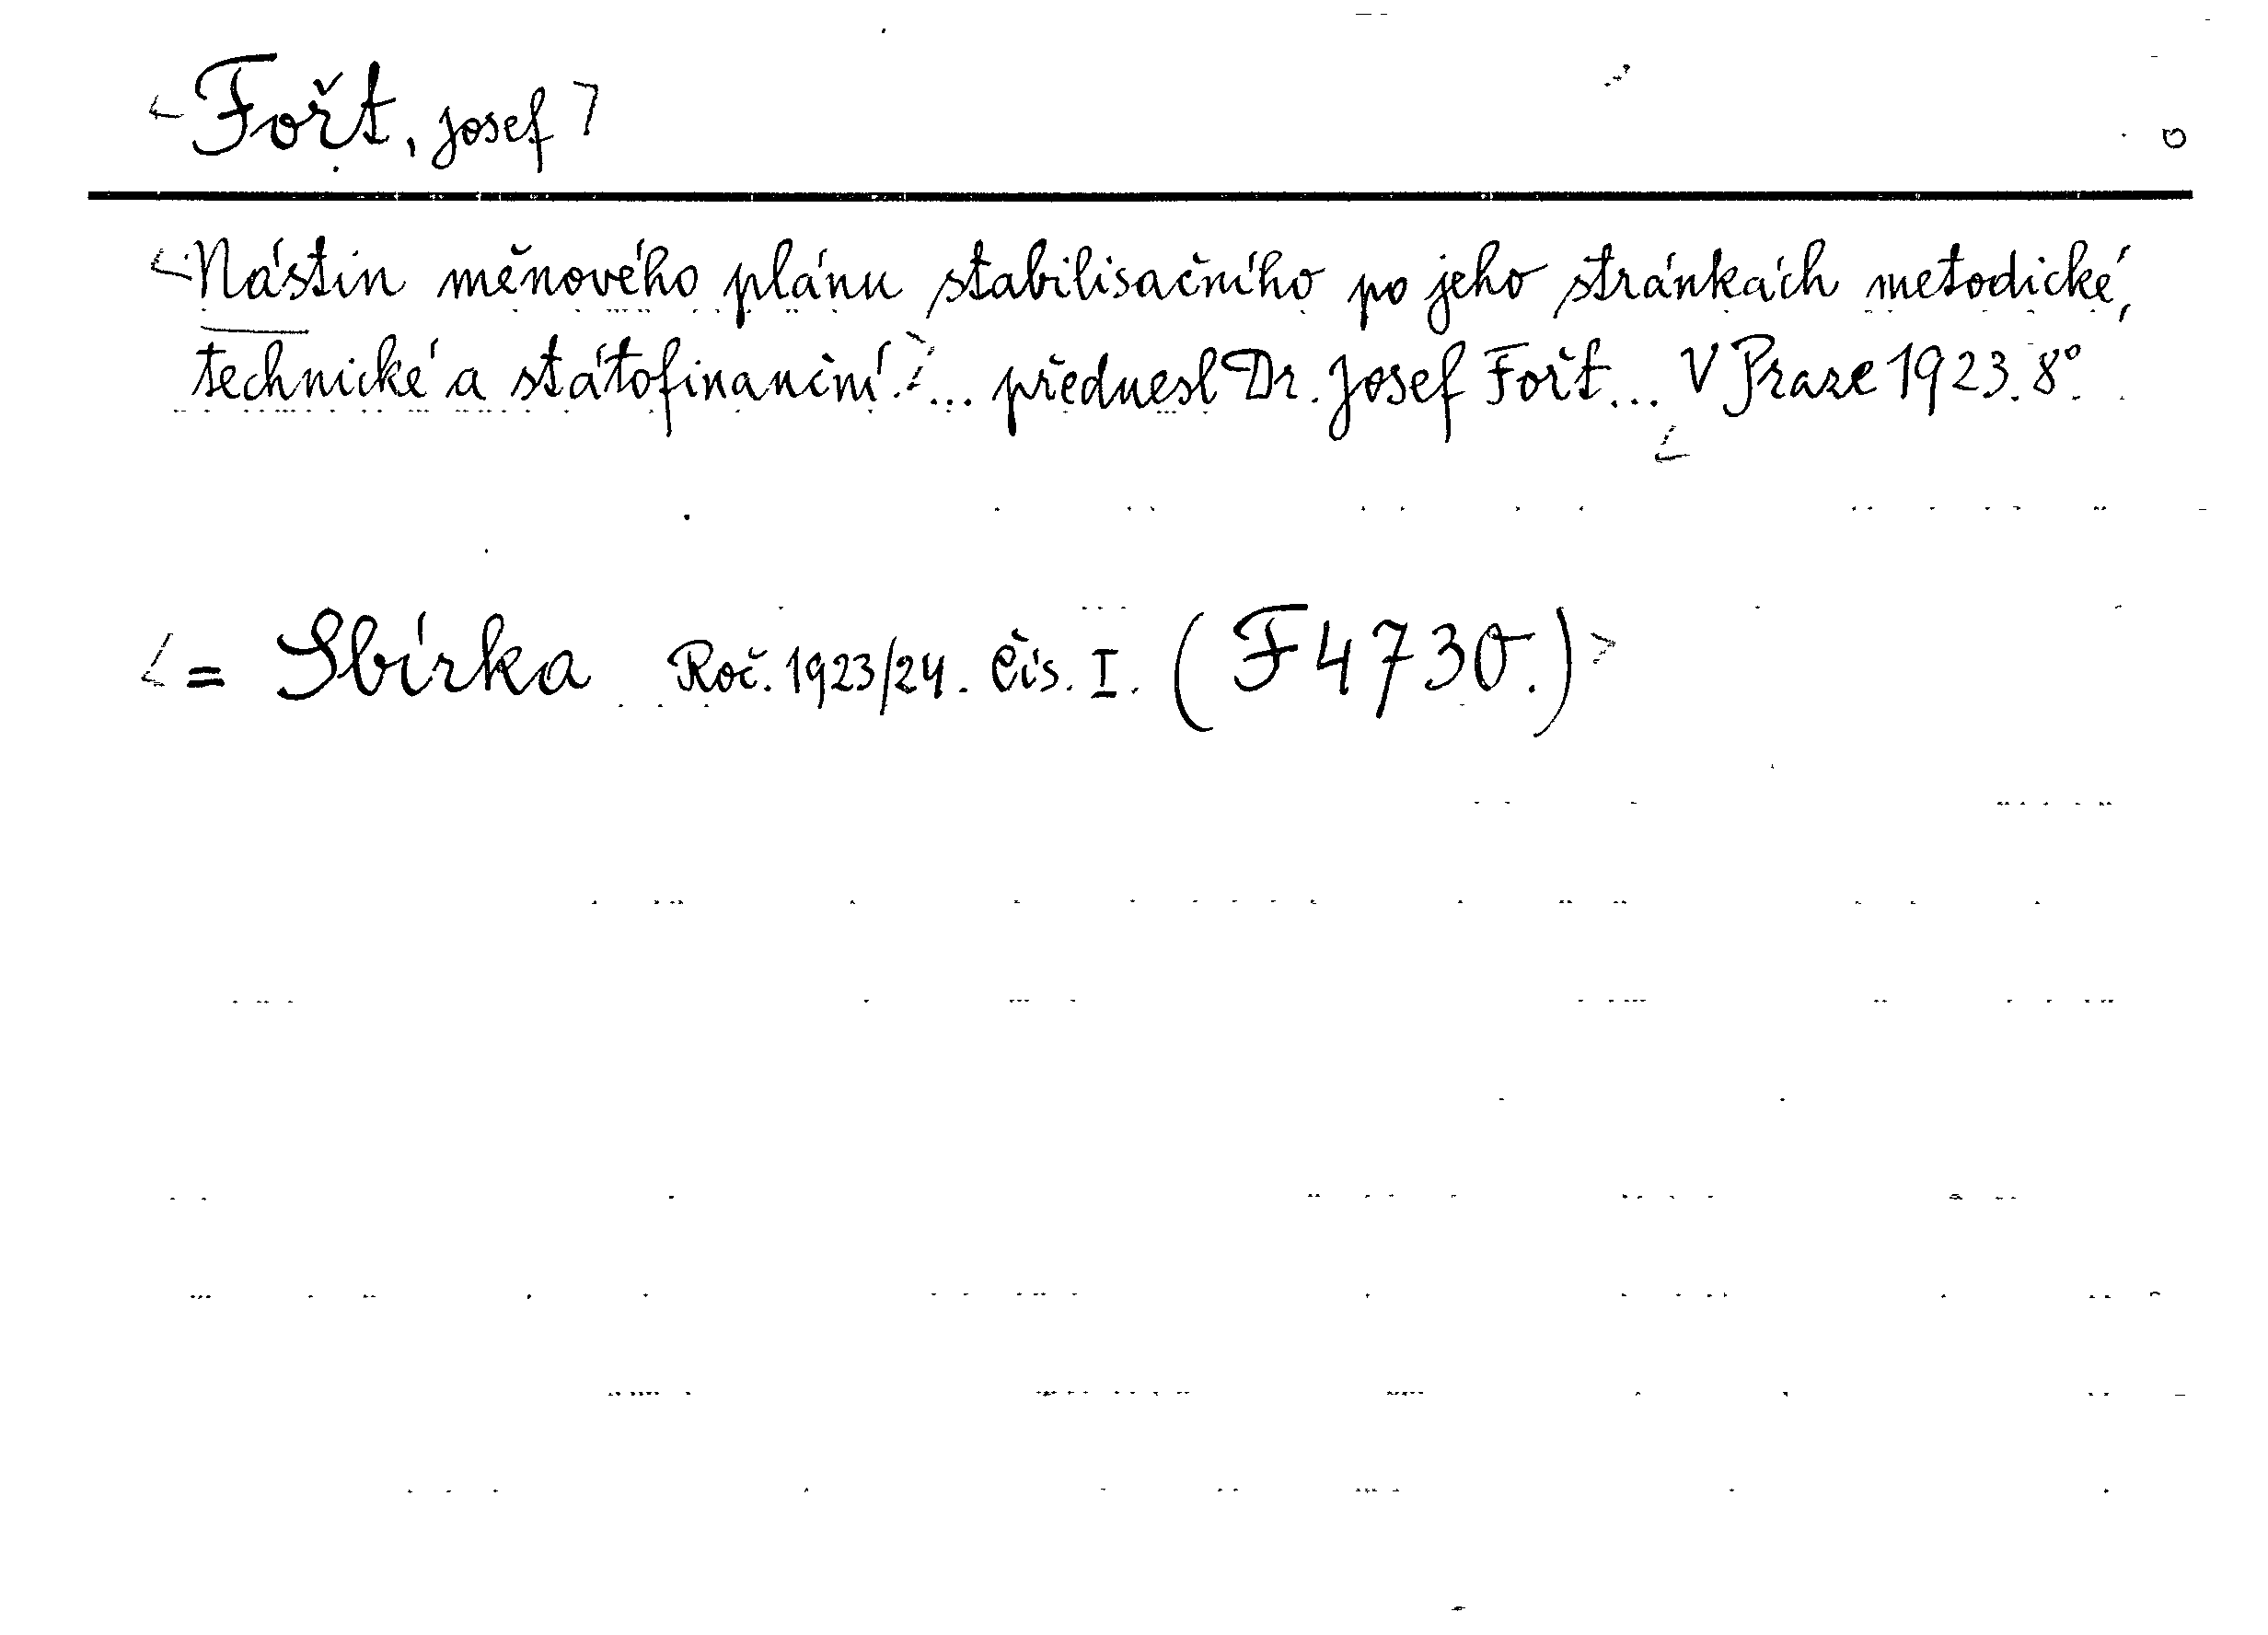 Fořt, Josef
Nástin měnového plánu stabilisačního po jeho stránkách metodické,
technické a státofinanční. ... přednesl Dr. Josef Fořt... V Praze 1923. 8°.
= Sbírka Roč. 1923/24. Čís. I. (F 4730.)